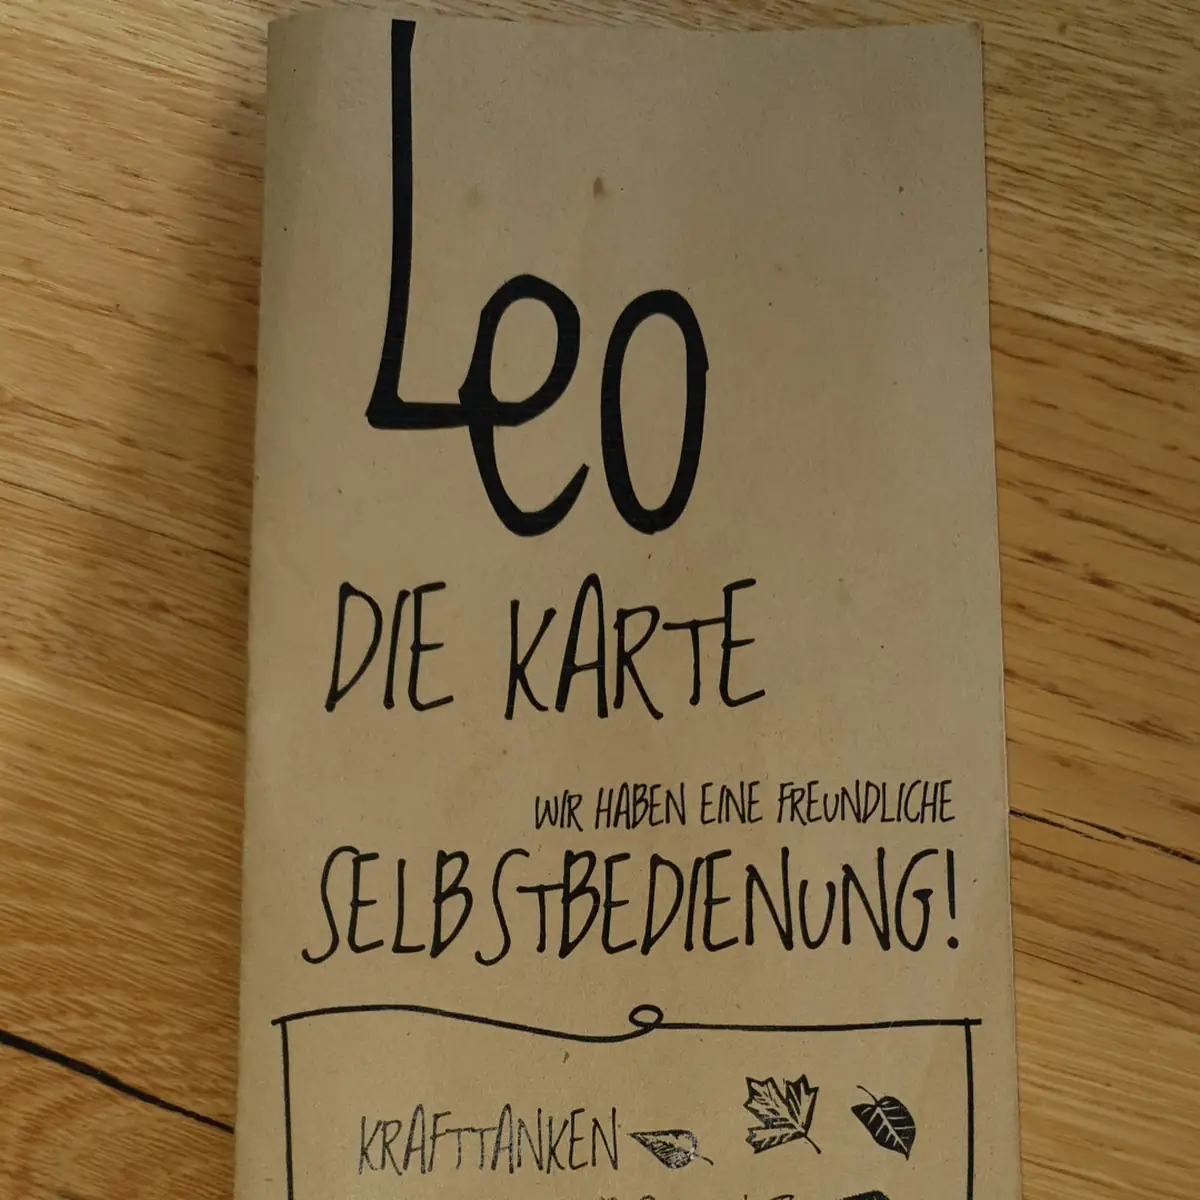 Leo
DIE KARTE
WIR HABEN EINE FREUNDLICHE
SELBSTBEDIENUNG!
KRAFTTANKEN